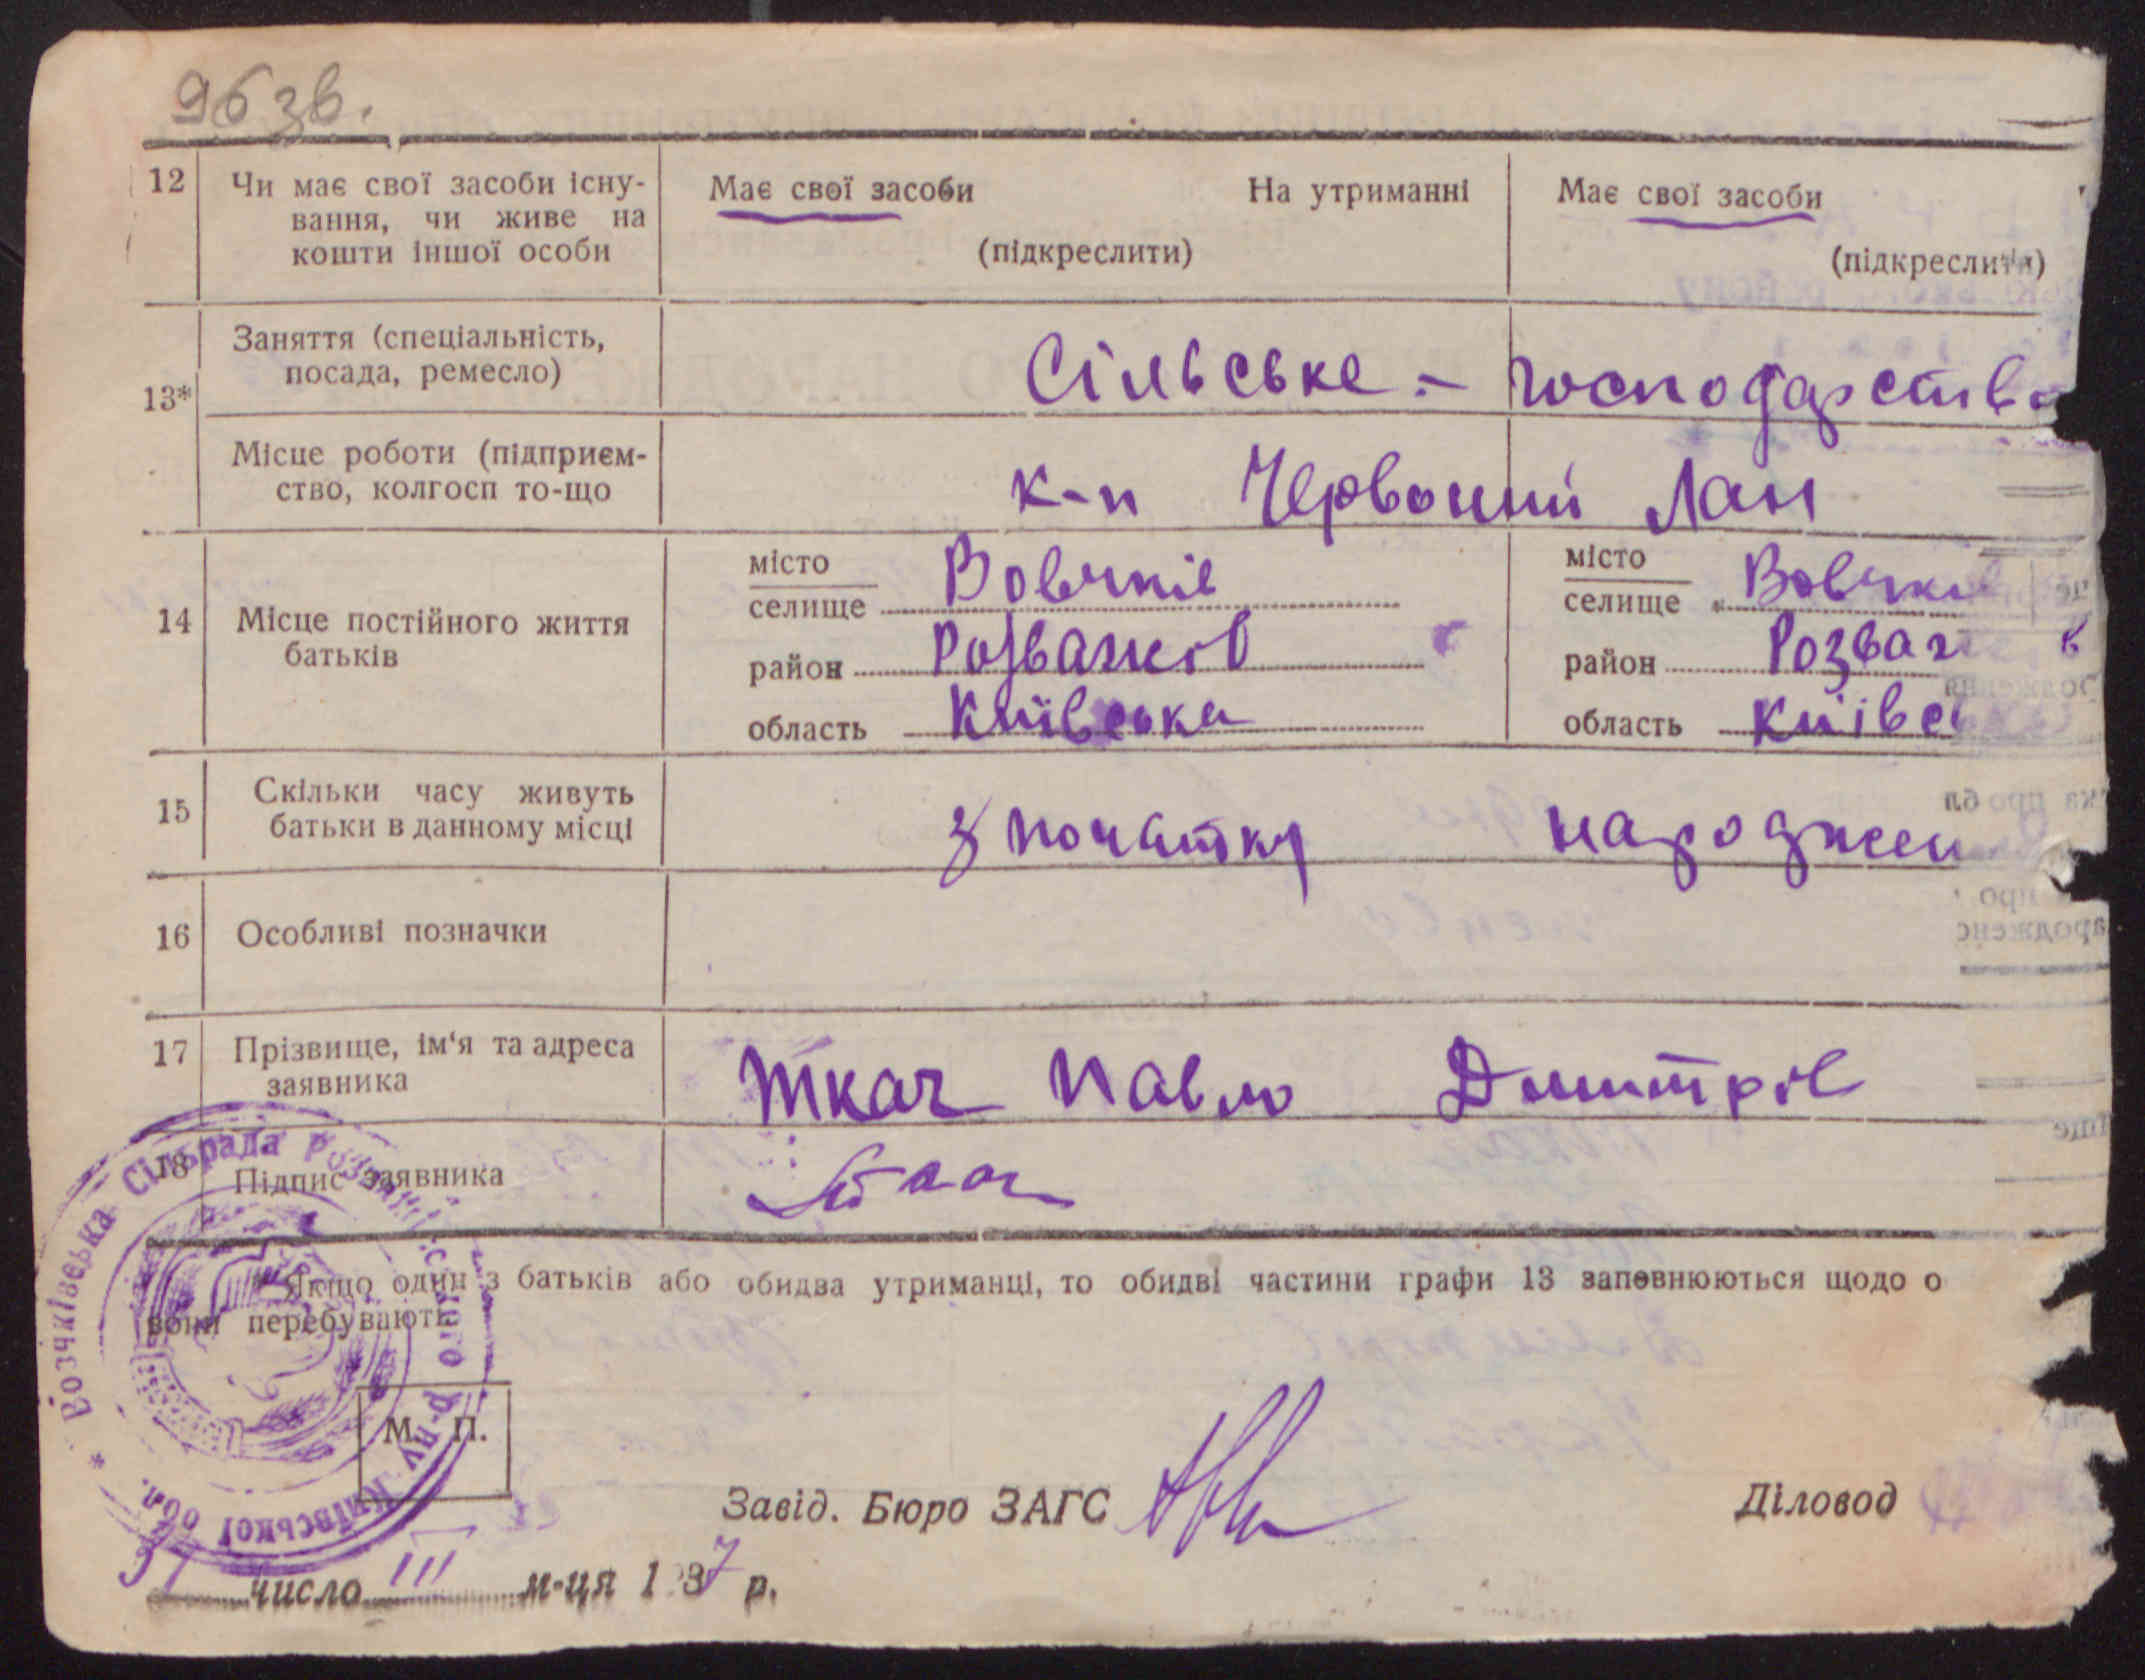 96 зв.
12 Чи має свої засоби існу- Має свої засоби На утриманні Має свої засоби
вання, чи живе на
кошти іншої особи (підкреслити) (підкреслити)
Заняття (спеціальність,
посада, ремесло) Сільське - господарство
13*
Місце роботи (підприєм-
ство, колгосп то-що к-п Червоний Лан
місто Вовчків місто Вовчкі
селище селище
14 Місце постійного життя
батьків
район Розважів район Розваж в
область Київська область Київсь
15 Скільки часу живуть
батьки в данному місці з початку народжен
16 Особливі позначки
17 Прізвище, ім'я та адреса
заявника Ткач Павло Дмитрів
18 Підпис заявника Ткач
* Якщо один з батьків або обидва утриманці, то обидві частини графи 13 заповнюються щодо о
вони перебувають.
М. П.
Завід. Бюро ЗАГС Діловод
31 число III м-ця 1937 р.
Вовчківська сільрада Розважівського р-ну Київської обл. *